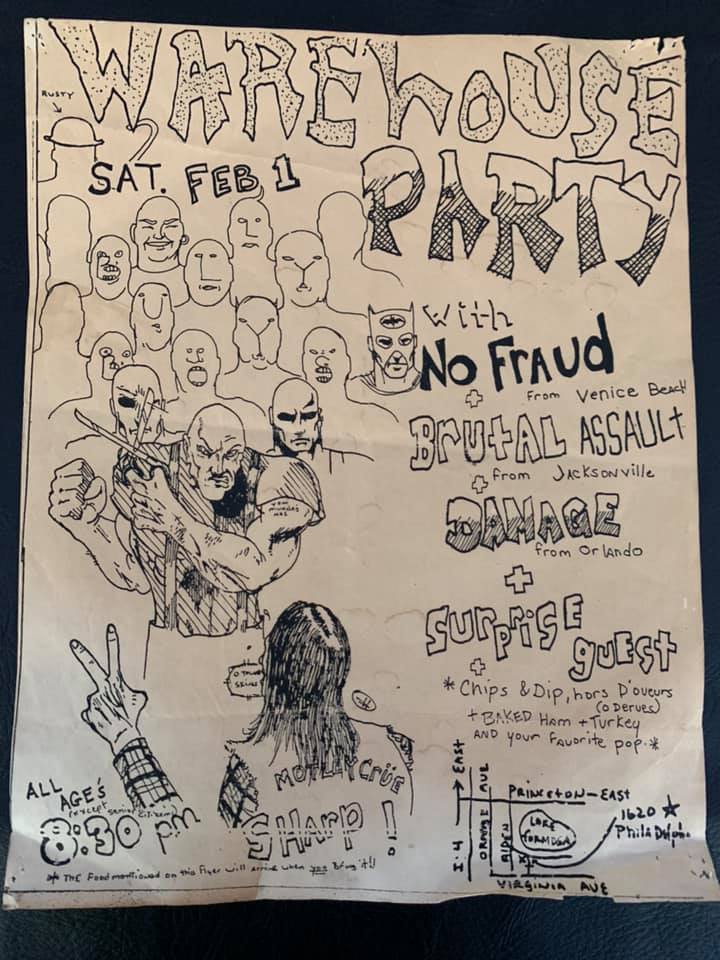 WAREHOUSE
PARTY
RUSTY
SAT. FEB 1
with
No Fraud
from Venice Beach
+
Brutal Assault
from Jacksonville
+
Damage
from Orlando
+
Surprise
guest
+
* Chips & Dip, hors D'oueurs
(o Derves)
+ BAKED Ham + Turkey
AND your Favorite pop. *
MOTLEY CRÜE
SHARP!
ALL
AGE'S
(except senior citizens)
8:30 pm
* THE Food mentioned on this Flyer will arrive when you bring it!!
I-4 → EAST
ORANGE AVE
PRINCETON-EAST
ALDEN
LAKE
FORMOSA
1620 ★
VIRGINIA AVE